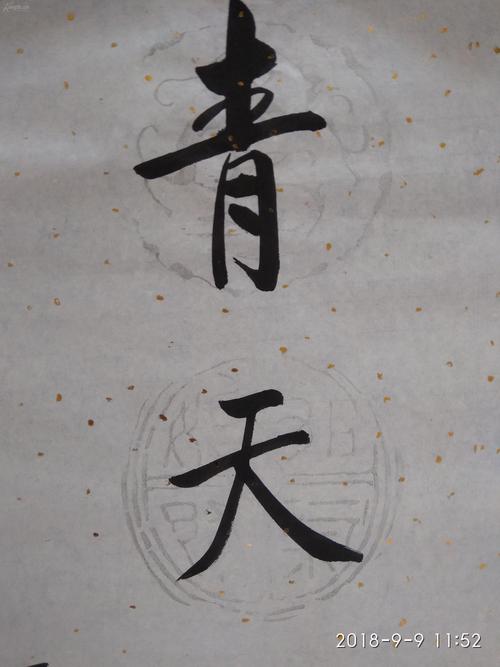 青
天
2018-9-9 11:52